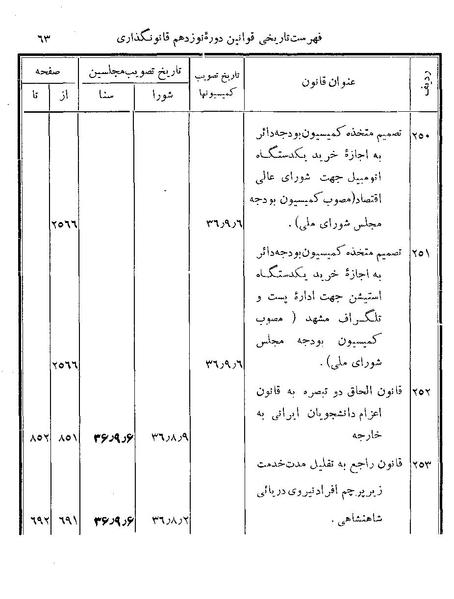 فهرست تاریخی قوانین دورهٔ نوزدهم قانونگذاری
۶۳
ردیف
عنوان قانون
تاریخ تصویب
کمیسیونها
تاریخ تصویب مجلسین
شورا
سنا
صفحه
از
تا
۲۵۰
تصمیم متخذه کمیسیون بودجه دائر
به اجازهٔ خرید یکدستگاه
اتومبیل جهت شورای عالی
اقتصاد(مصوب کمیسیون بودجه
مجلس شورای ملی).
۳۶٫۹٫۶
۲۵۶۶
۲۵۱
تصمیم متخذه کمیسیون بودجه دائر
به اجازهٔ خرید یکدستگاه
استیشن جهت ادارهٔ پست و
تلگراف مشهد ( مصوب
کمیسیون بودجه مجلس
شورای ملی).
۳۶٫۹٫۶
۲۵۶۶
۲۵۲
قانون الحاق دو تبصره به قانون
اعزام دانشجویان ایرانی به
خارجه
۳۶٫۸٫۹
۳۶٫۹٫۶
۸۵۱
۸۵۲
۲۵۳
قانون راجع به تقلیل مدت خدمت
زیر پرچم افراد نیروی دریائی
شاهنشاهی .
۳۶٫۸٫۲
۳۶٫۹٫۶
۶۹۱
۶۹۲